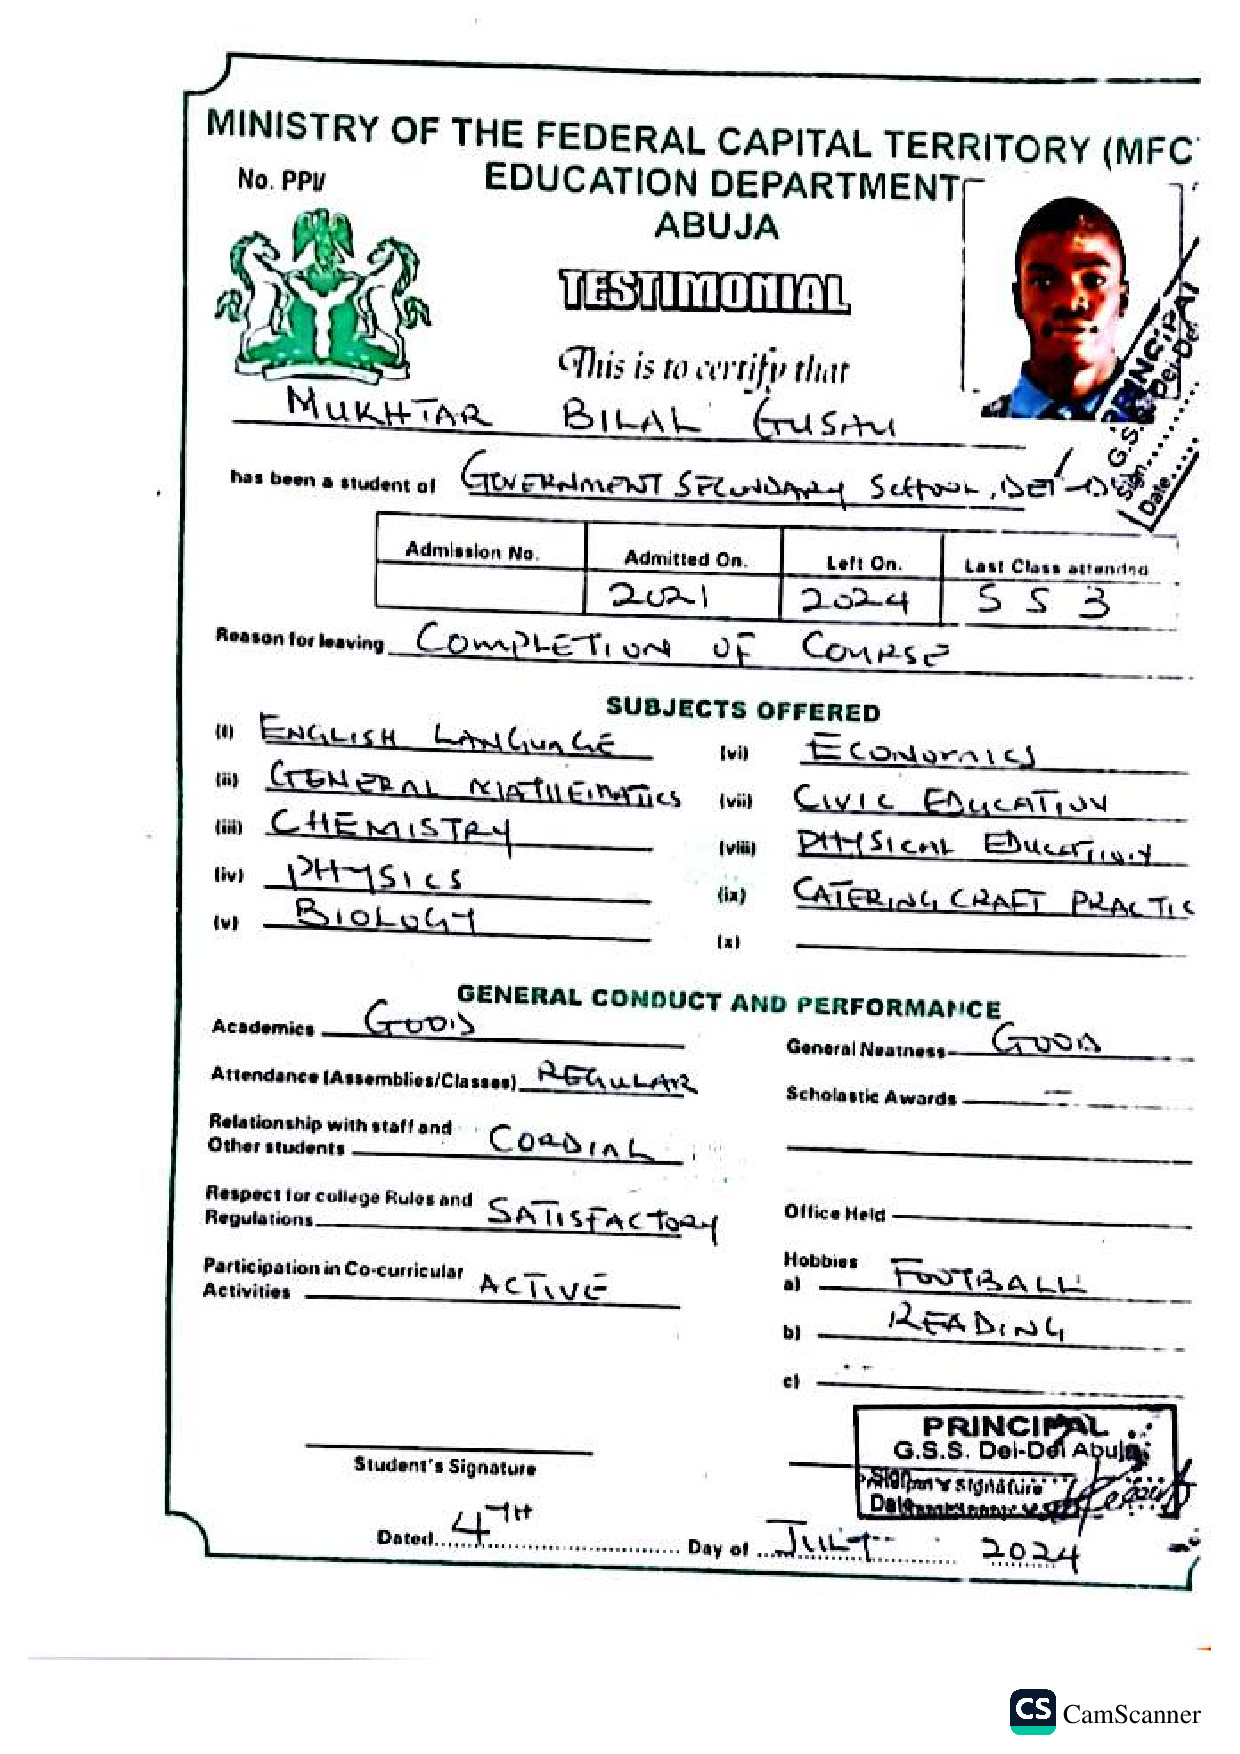 MINISTRY OF THE FEDERAL CAPITAL TERRITORY (MFC
No. PPI/
EDUCATION DEPARTMENT
ABUJA
TESTIMONIAL
This is to certify that
MUKHTAR BILAL GUSAU
has been a student of GOVERNMENT SECONDARY SCHOOL, DEI-DEI
PRINCIPAL
G.S.S. Dei-Dei
Sign
Date
Admission No. Admitted On. Left On. Last Class attended
2021 2024 SS3
Reason for leaving COMPLETION OF COURSE
SUBJECTS OFFERED
(i) ENGLISH LANGUAGE
(ii) GENERAL MATHEMATICS
(iii) CHEMISTRY
(iv) PHYSICS
(v) BIOLOGY
(vi) ECONOMICS
(vii) CIVIC EDUCATION
(viii) PHYSICAL EDUCATION
(ix) CATERING CRAFT PRACTIC
(x)
GENERAL CONDUCT AND PERFORMANCE
Academics GOOD
Attendance (Assemblies/Classes) REGULAR
Relationship with staff and
Other students CORDIAL
Respect for college Rules and
Regulations SATISFACTORY
Participation in Co-curricular
Activities ACTIVE
General Neatness GOOD
Scholastic Awards —
Office Held
Hobbies
a) FOOTBALL
b) READING
c) --
Student's Signature
PRINCIPAL
G.S.S. Dei-Dei Abuja
Sign
Date
Dated 4TH Day of JULY 2024
CS CamScanner